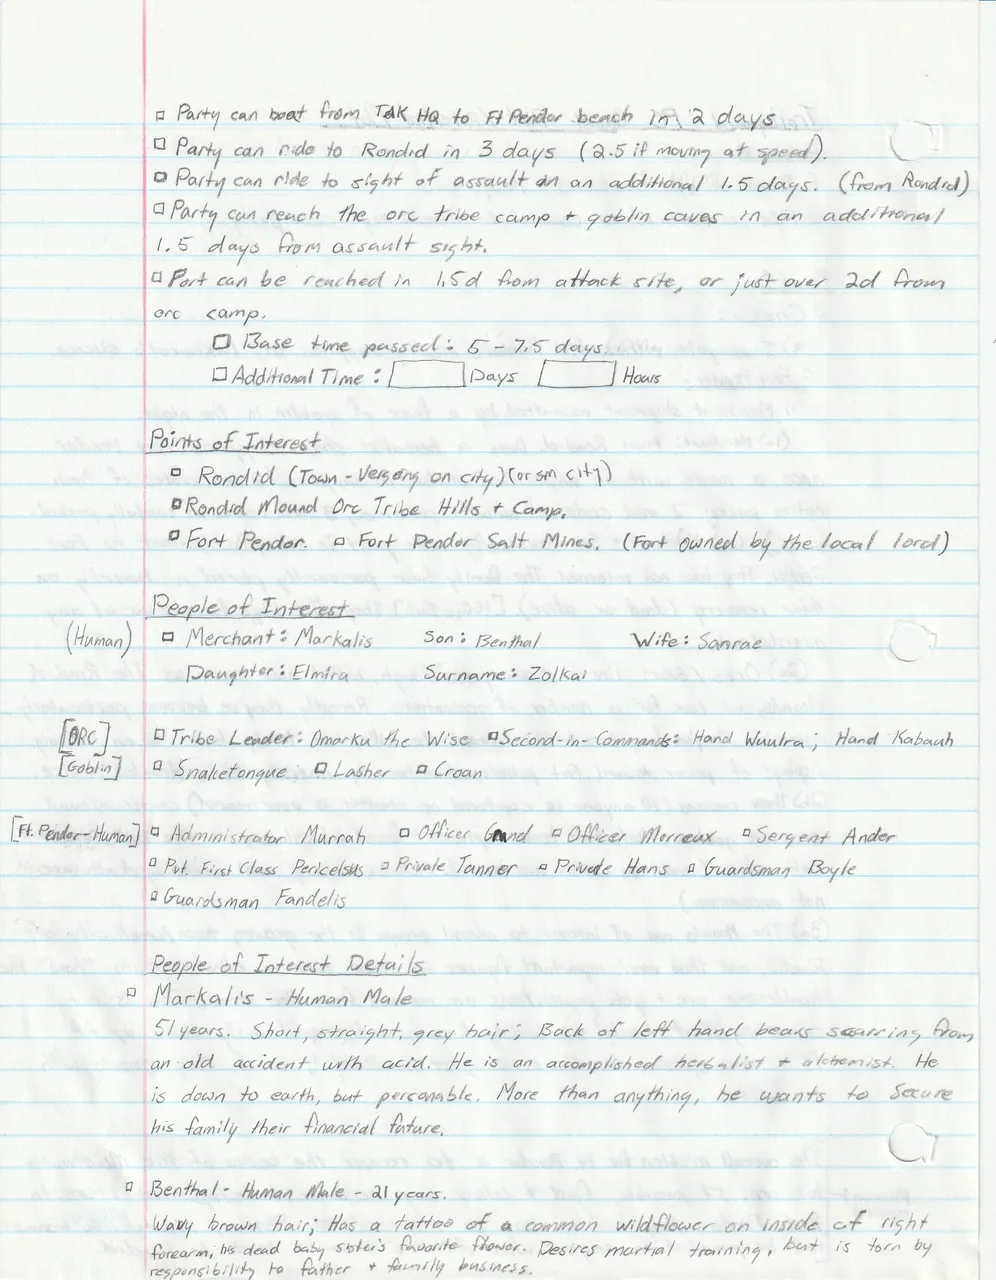 □ Party can boat from TAK HQ to Ft Pendor beach in 2 days
□ Party can ride to Rondid in 3 days (2.5 if moving at speed).
□ Party can ride to sight of assault in an additional 1.5 days. (from Rondid)
□ Party can reach the orc tribe camp + goblin caves in an additional
1.5 days from assault sight.
□ Port can be reached in 1.5d from attack site, or just over 2d from
orc camp.
□ Base time passed: 5 - 7.5 days.
□ Additional Time: Days Hours
Points of Interest
□ Rondid (Town - Verging on city) (or sm city)
□ Rondid Mound Orc Tribe Hills + Camp.
□ Fort Pendor. □ Fort Pendor Salt Mines. (Fort owned by the local lord)
People of Interest
(Human) □ Merchant: Markalis Son: Benthal Wife: Sanrae
Daughter: Elmira Surname: Zolkai
[ORC] □ Tribe Leader: Omarku the Wise □ Second-in-Commands: Hand Wuulra; Hand Kabauh
[Goblin] □ Snaketongue □ Lasher □ Croan
[Ft. Pendor-Human] □ Administrator Murrah □ Officer □ Officer Morreux □ Sergent Ander
□ Pvt. First Class Pericelsus □ Private Tanner □ Private Hans □ Guardsman Boyle
□ Guardsman Fandelis
People of Interest Details
□ Markalis - Human Male
51 years. Short, straight, grey hair; Back of left hand bears scarring from
an old accident with acid. He is an accomplished herbalist + alchemist. He
is down to earth, but personable. More than anything, he wants to secure
his family their financial future.
□ Benthal - Human Male - 21 years.
Wavy brown hair; Has a tattoo of a common wildflower on inside of right
forearm; his dead baby sister's favorite flower. Desires martial training, but is torn by
responsibility to father + family business.